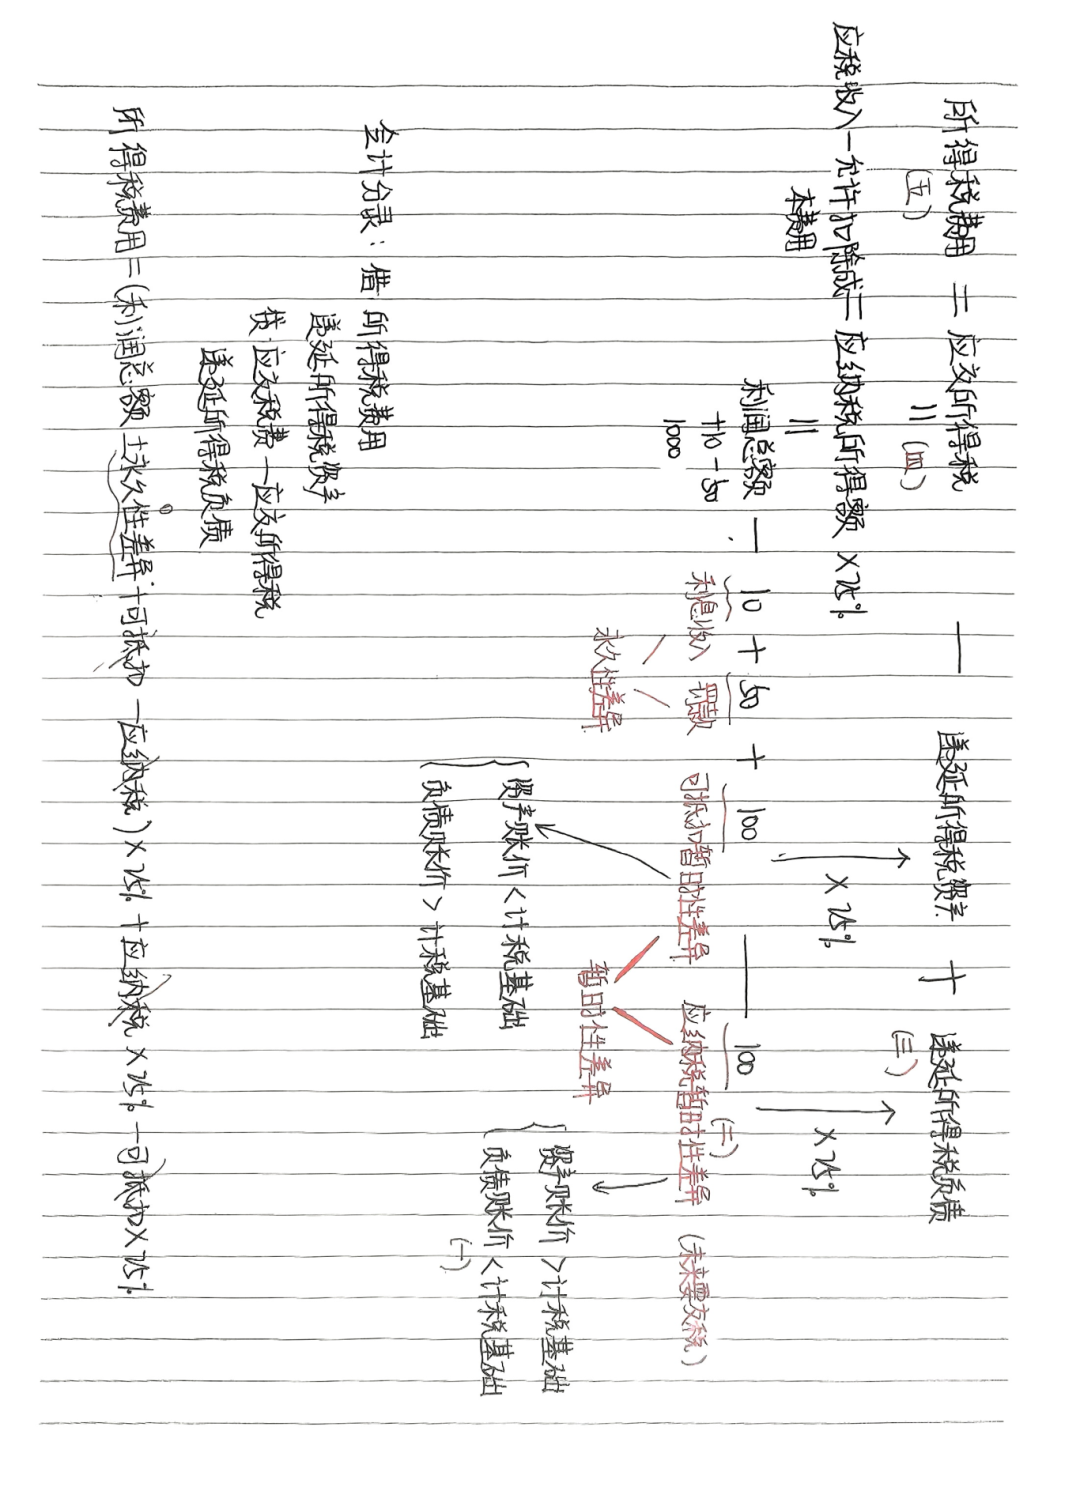 所得税费用 = 应交所得税 — 递延所得税资产 + 递延所得税负债
(五) = (四) (三)
应税收入-允许扣除成 = 应纳税所得额 ×25% ×25% ×25%
本费用
=
利润总额 - 10 + 50 + 100 — 100
+10-50 利息收入 罚款 可抵扣暂时性差异 应纳税暂时性差异 (二) (未来要交税)
1000
永久性差异 暂时性差异
资产账价<计税基础 资产账价>计税基础
负债账价>计税基础 负债账价<计税基础
(一)
会计分录: 借:所得税费用
递延所得税资产
贷:应交税费-应交所得税
递延所得税负债
所得税费用=(利润总额±永久性差异+可抵扣-应纳税)×25%+应纳税×25%-可抵扣×25%